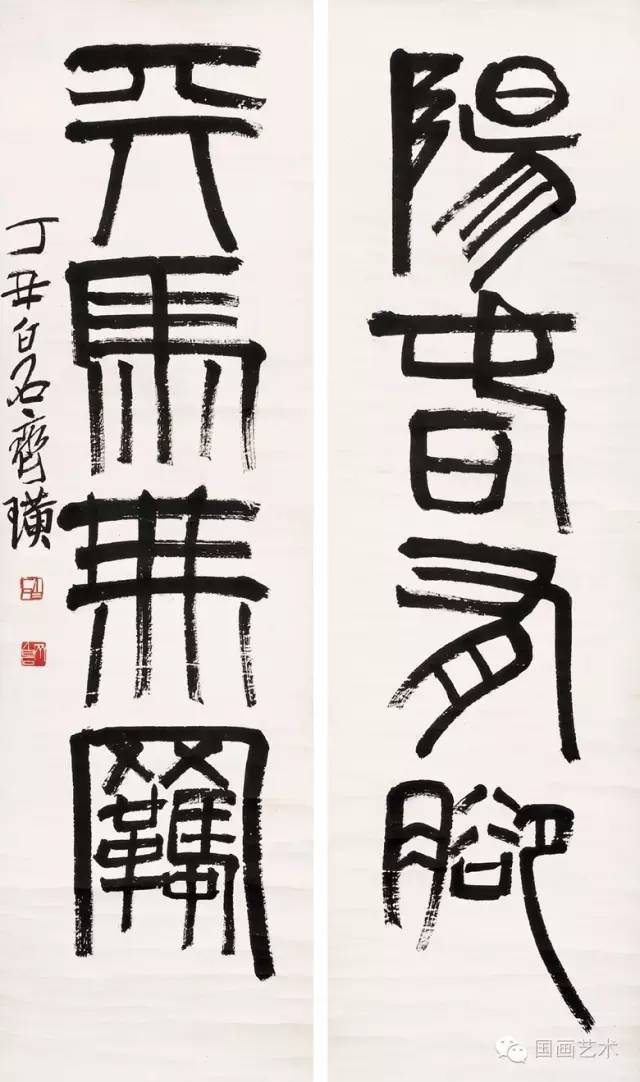 陽春有腳
天馬無羈
丁丑白石齊璜
国画艺术